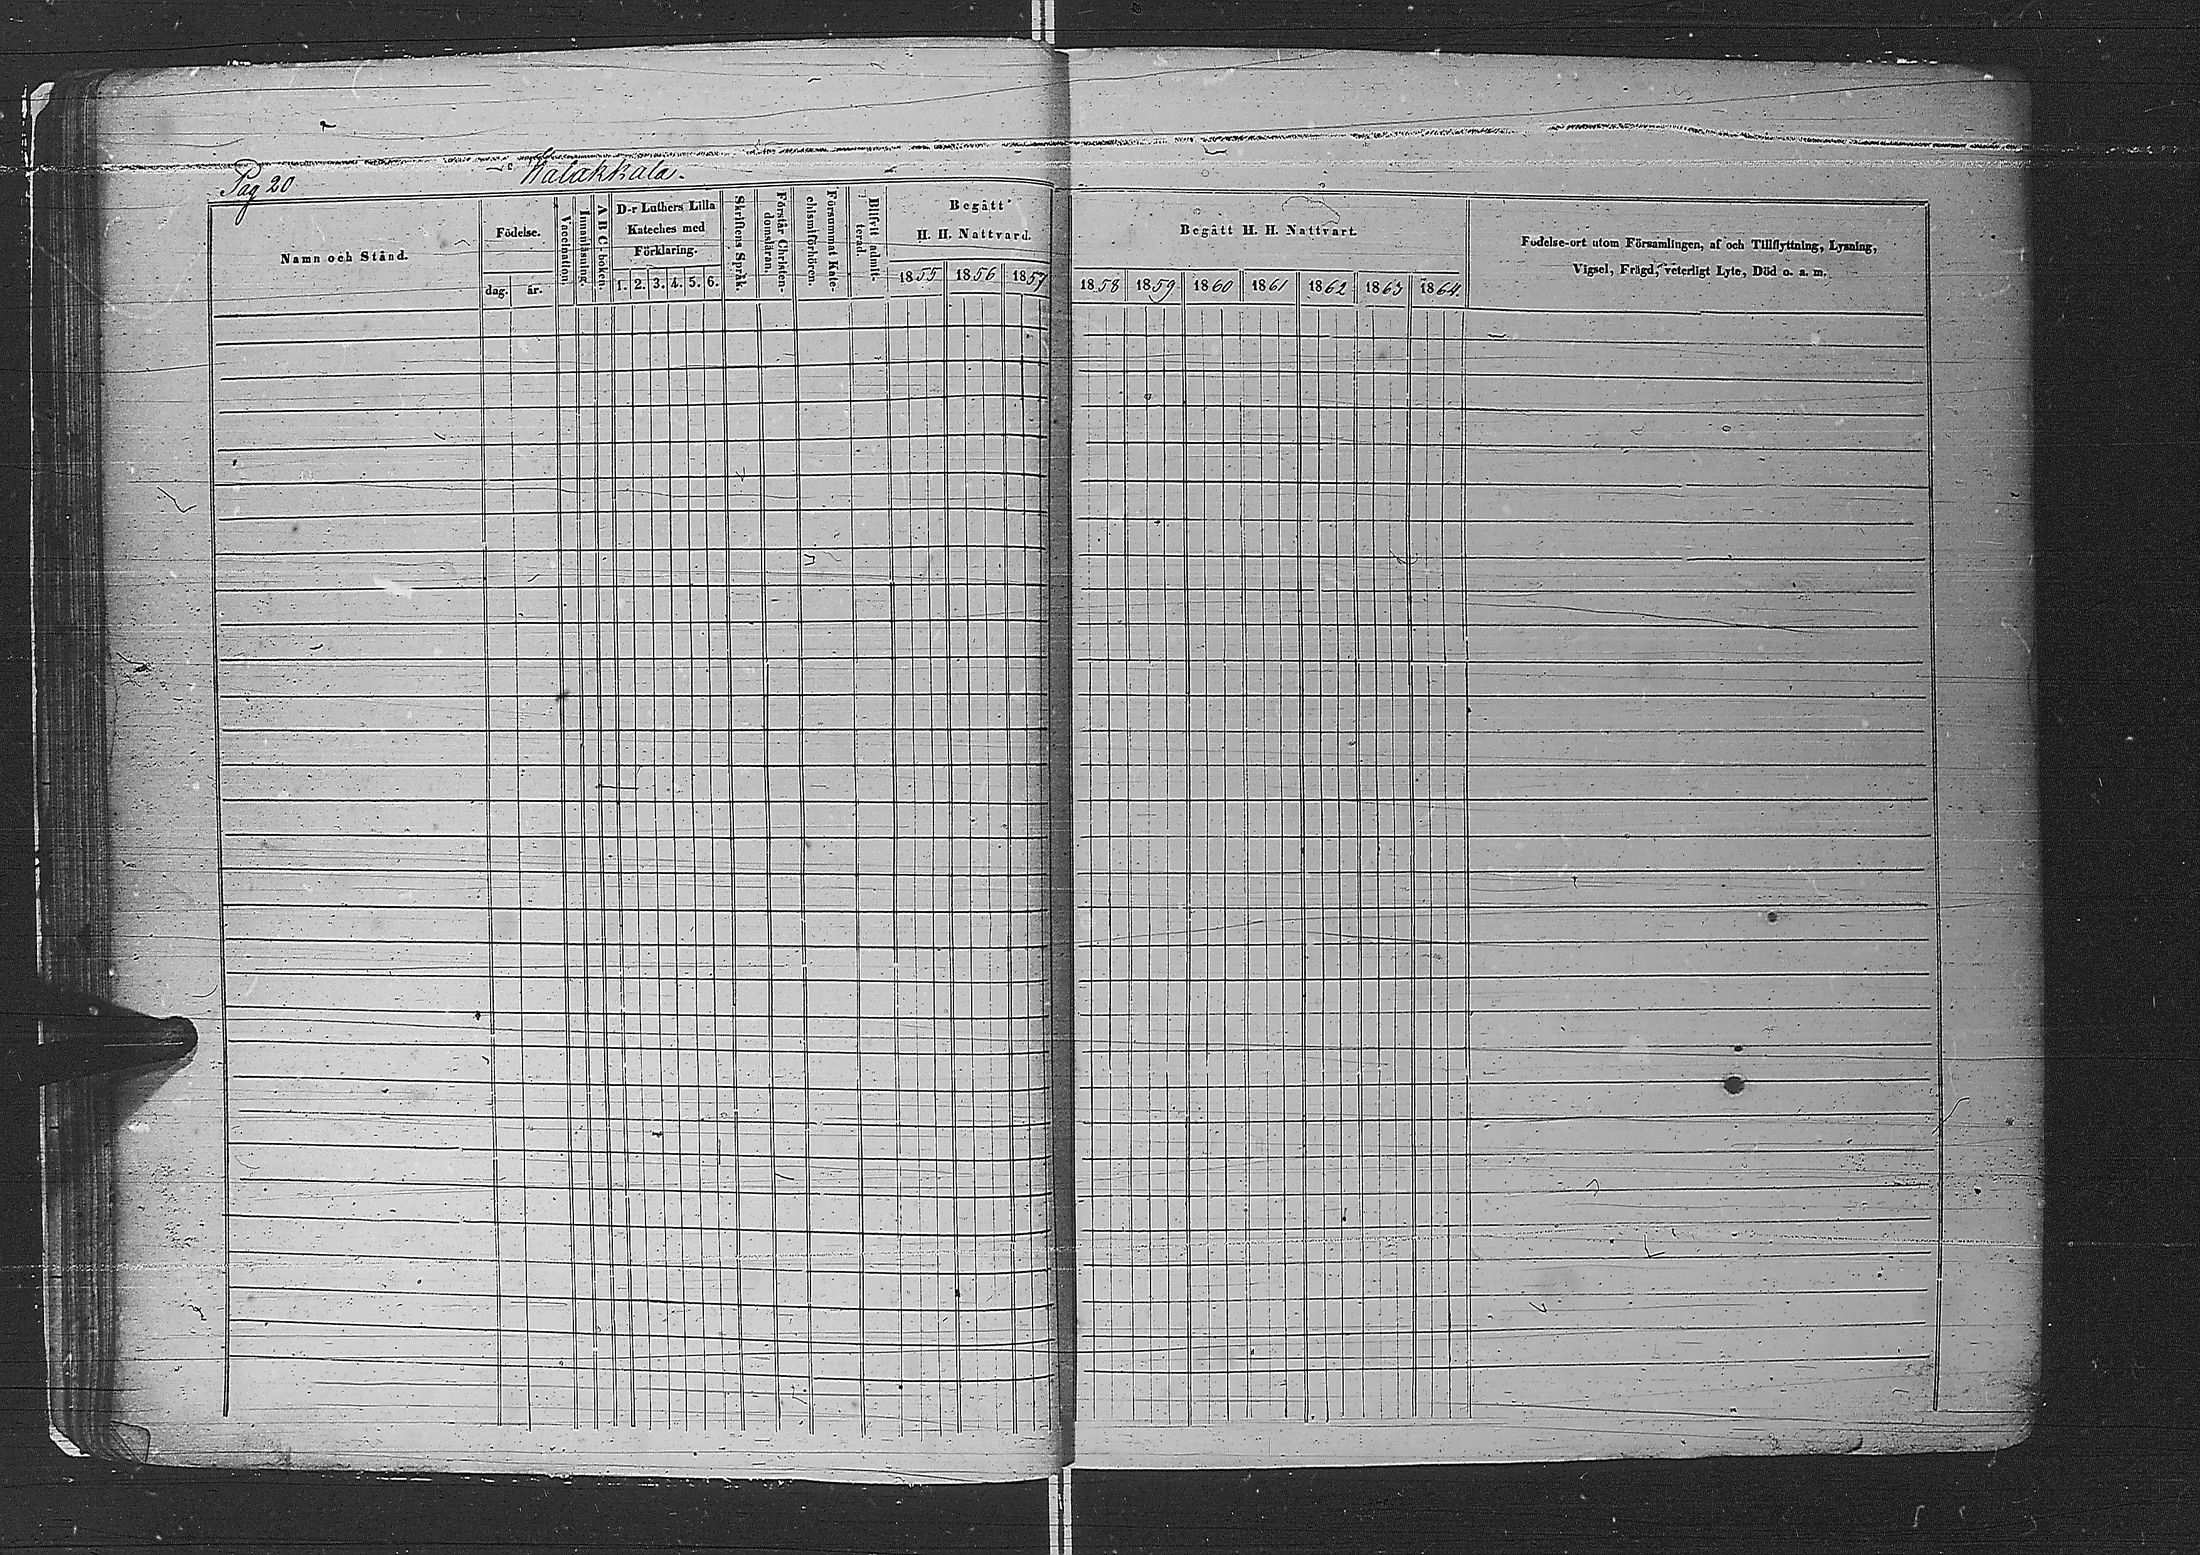 Pag 20
Kalakkala.
Namn och Stånd.
Födelse.
dag. år.
Vaccination.
Innanläsning.
A B C-boken.
D-r Luthers Lilla
Kateches med
Förklaring.
1. 2. 3. 4. 5. 6.
Skriftens Språk.
Förstår Christen-
domsläran.
Försummat Kate-
chismiförhören.
Blifvit admit-
terad.
Begått
H. H. Nattvard.
1855 1856 1857
Begått H. H. Nattvart.
1858 1859 1860 1861 1862 1863 1864.
Födelse-ort utom Församlingen, af och Tillflyttning, Lysning,
Vigsel, Frägd, veterligt Lyte, Död o. a. m.